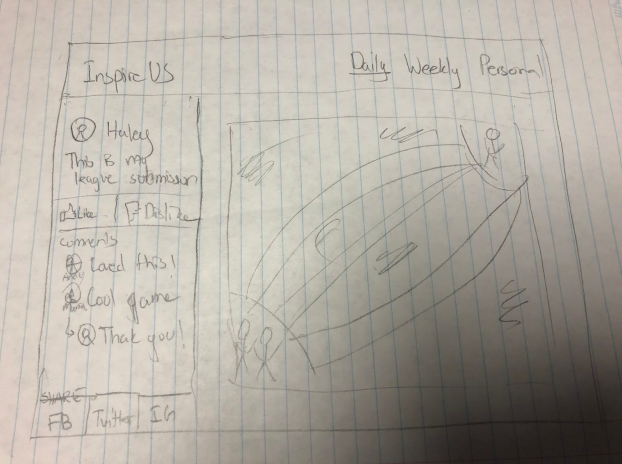 InspireUS
Daily Weekly Personal
Haley
This is my
league submission
Like Dislike
comments
Loved this!
Cool game
Thak you!
SHARE
FB Twitter IG